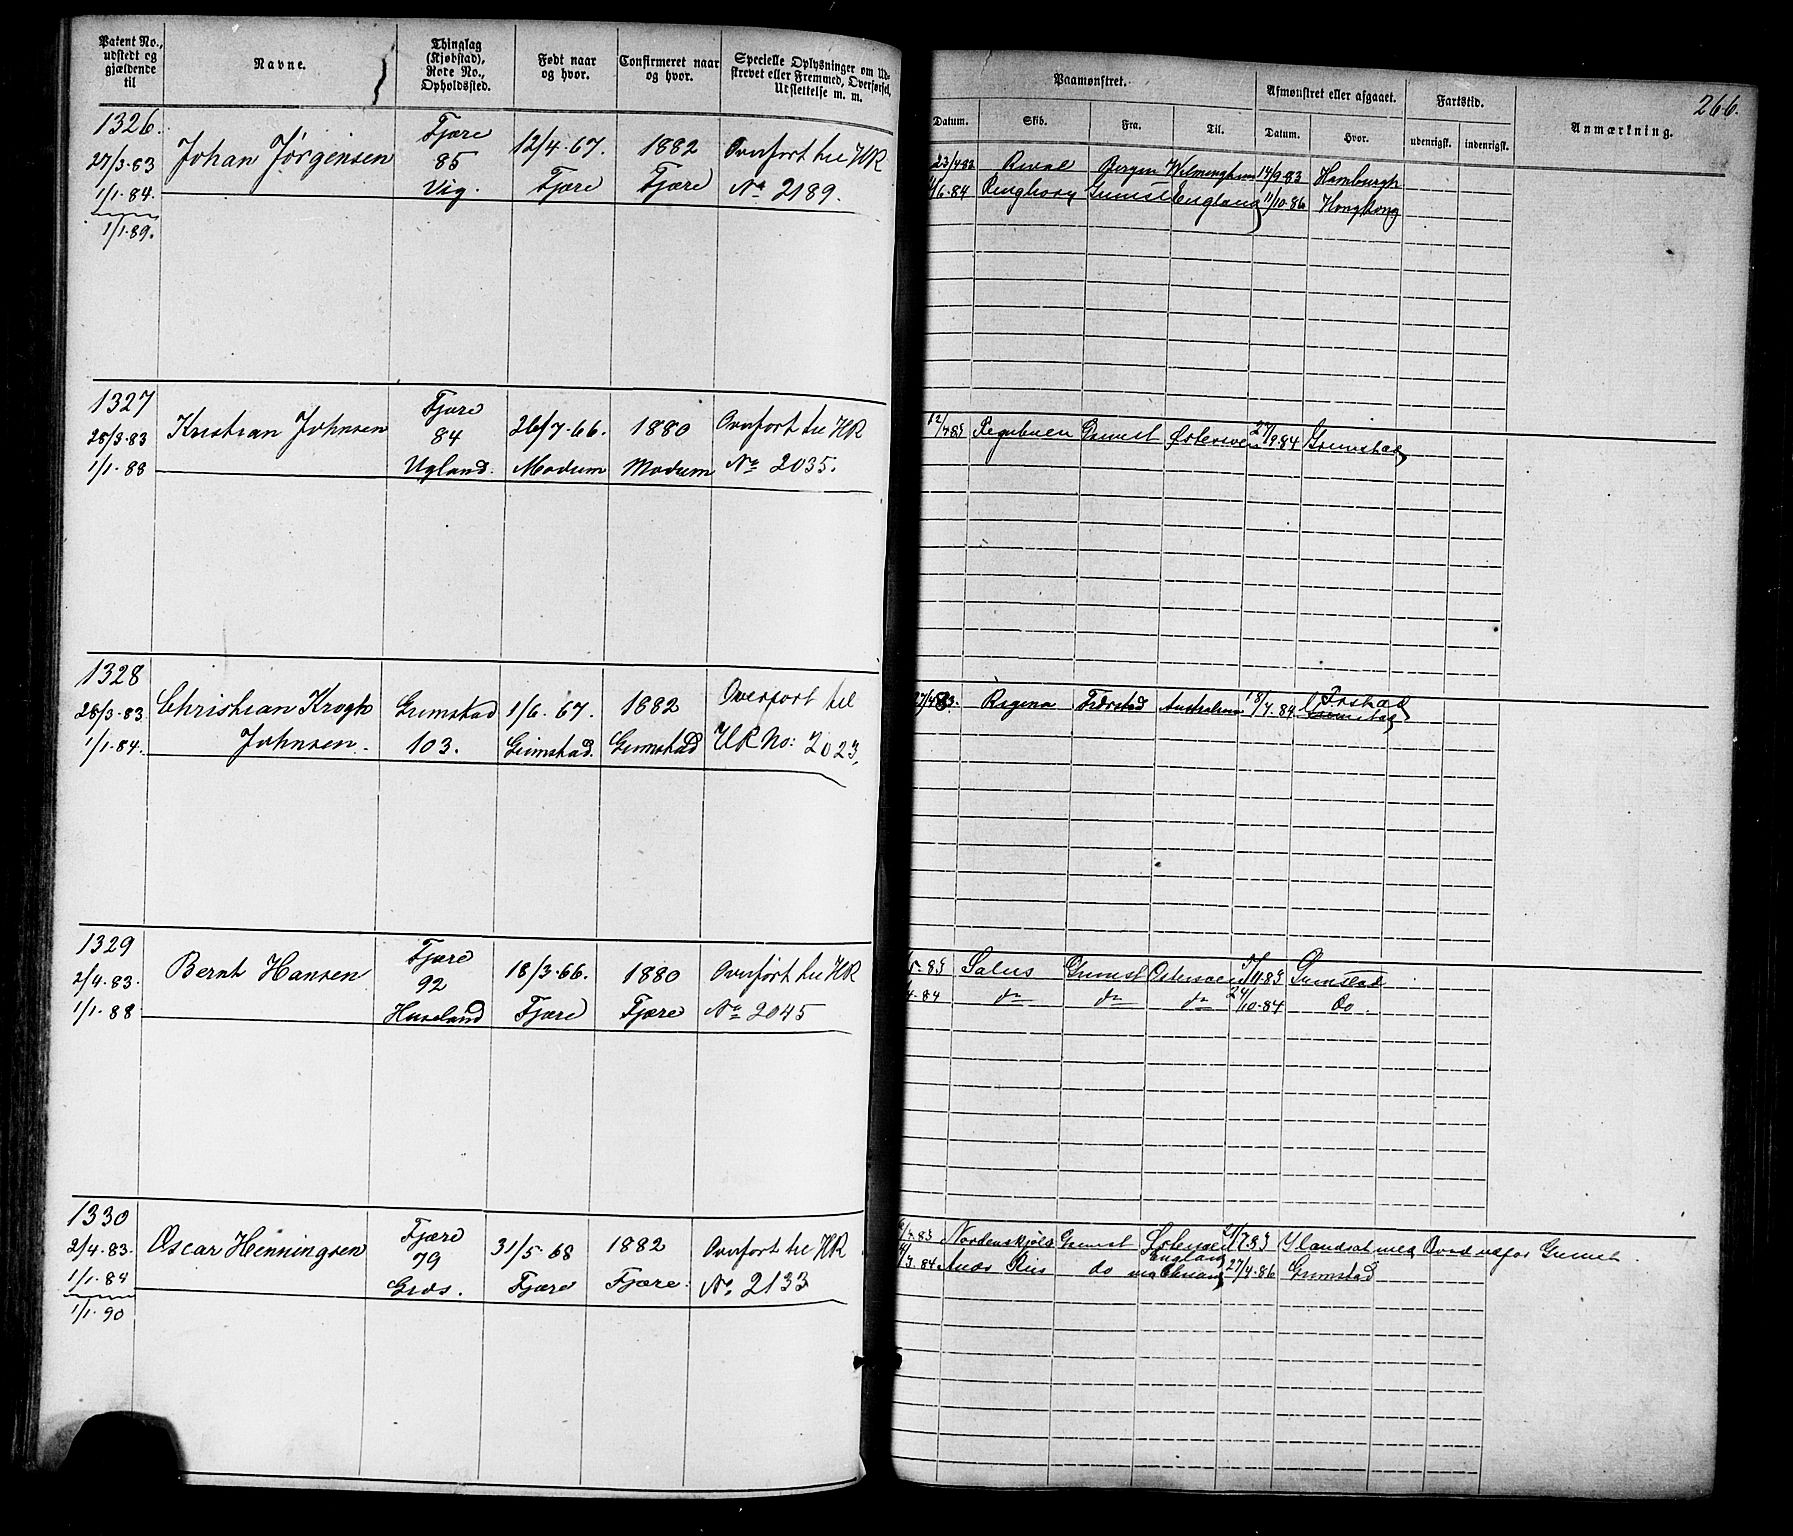 Patent No., udstedt og gjældende til
Navne.
Thinglag (Kjøbstad), Rote No., Opholdssted.
Født naar og hvor.
Confirmeret naar og hvor.
Specielle Oplysninger om Udskrevet eller Fremmed, Overførsel, Udslettelse m. m.
Paamønstret.
Datum. Skib. Fra. Til.
Afmønstret eller afgaaet.
Datum. Hvor.
Fartstid.
udenrigsk. indenrigsk.
Anmærkning.
266.
1326. Johan Jörgensen Fjære 12/4-67. 1882 Overfört til HR
27/3-83 85 Fjære Fjære No 2189.
1/1-84. Vig.
1/1-89.
23/4-83 Bergen 14/9-83 Hamburgh
/6-84 Ringhorn Grimst England 11/10-86 Hongkong
1327 Kristian Johnsen Fjære 26/7-66. 1880 Overfört til HR
28/3-83 84 Modum Modum No 2035.
1/1-88 Ugland.
12/4-83 Grimst Østersøen 27/9-84 Grimstad
1328 Christian Krogh Grimstad 1/6-67. 1882 Overfört til
28/3-83 Johnsen. 103. Grimstad. Grimstad HR No: 2023.
1/1-84.
27/4-83. Regina Fiærstad Australien 18/7-84
Grimstad
1329 Bernt Hansen Fjære 18/3-66. 1880 Overfört til HR
2/4-83. 92 Fjære Fjære No 2045
1/1-88 Huseland
/5-83 Salus Grimst Ostersoen 5/11-83 Grimstad
/4-84 do do do 24/10-84 do.
1330 Oscar Henningsen Fjære 31/5-68 1882 Overfört til HR
2/4-83. 79 Fjære Fjære. No. 2133
1/1-84 Grøs.
1/1-90
/4-83 Nordenskjöld Grimst Østersøen Ilandsat med Baad udfor Grimst.
/3-84 do England 27/4-86 Grimstad